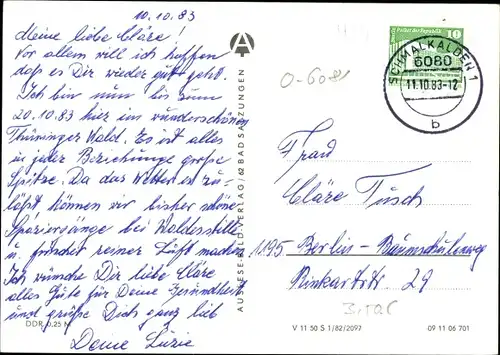 10.10.83
Meine liebe Cläre!
Vor allem will ich hoffen
daß es Dir wieder gut geht.
Ich bin nun bis zum
20.10.83 hier im wunderschönen
Thüringer Wald. Es ist alles
in jeder Beziehunge große
Spitze. Da das Wetter es zu-
läßt können wir bisher schöne
Spaziergänge bei Waldesstille
u. frischer reiner Luft machen
Ich wünsche Dir liebe Cläre
alles Gute für Deine Gesundheit
und grüße Dich ganz lieb
Deine Luzie
DDR 0,25 M
AUSLESE-BILD-VERLAG/62 BAD SALZUNGEN
A
10
SCHMALKALDEN 1
6080
11.10.83-12
b
Frau
Cläre Tusch
1195 Berlin-Baumschulenweg
Rinkartstr. 29
V 11 50 S 1/82/2097
09 11 06 701